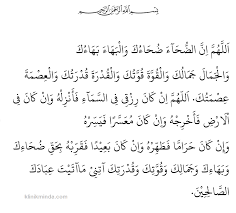 بِسْمِ اللهِ الرَّحْمٰنِ الرَّحِيْمِ
اَللّٰهُمَّ اِنَّ الضُّحَآءَ ضُحَاءُكَ وَالْبَهَاءَ بَهَاءُكَ
وَالْجَمَالَ جَمَالُكَ وَالْقُوَّةَ قُوَّتُكَ وَالْقُدْرَةَ قُدْرَتُكَ وَالْعِصْمَةَ
عِصْمَتُكَ. اَللّٰهُمَّ اِنْ كَانَ رِزْقِى فِى السَّمَآءِ فَأَنْزِلْهُ وَاِنْ كَانَ فِى
اْلاَرْضِ فَأَخْرِجْهُ وَاِنْ كَانَ مُعَسَّرًا فَيَسِّرْهُ
وَاِنْ كَانَ حَرَامًا فَطَهِّرْهُ وَاِنْ كَانَ بَعِيْدًا فَقَرِّبْهُ بِحَقِّ ضُحَاءِكَ
وَبَهَاءِكَ وَجَمَالِكَ وَقُوَّتِكَ وَقُدْرَتِكَ آتِنِيْ مَاآتَيْتَ عِبَادَكَ
الصَّالِحِيْنَ.